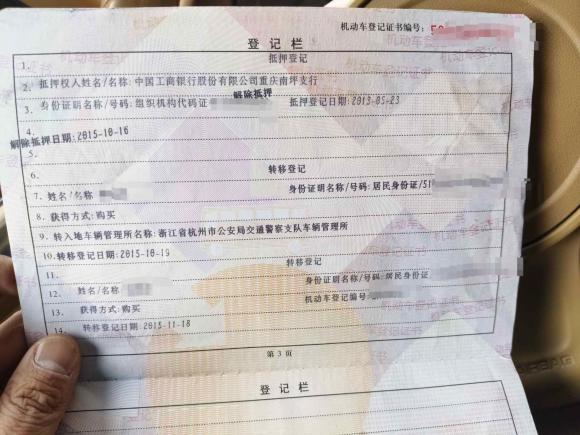 机动车登记证书编号:
登记栏
1. 抵押登记
2. 抵押权人姓名/名称:中国工商银行股份有限公司重庆南坪支行
3. 身份证明名称/号码:组织机构代码证 抵押登记日期:2013-05-23
解除抵押
4.
解除抵押日期:2015-10-16
5.
6. 转移登记
7. 姓名/名称 身份证明名称/号码:居民身份证/51
8. 获得方式:购买
9. 转入地车辆管理所名称:浙江省杭州市公安局交通警察支队车辆管理所
10. 转移登记日期:2015-10-19
11. 转移登记
12. 姓名/名称 身份证明名称/号码:居民身份证
13. 获得方式:购买 机动车登记编号:
14. 转移登记日期:2015-11-18
第3页
登记栏
AIRBAG